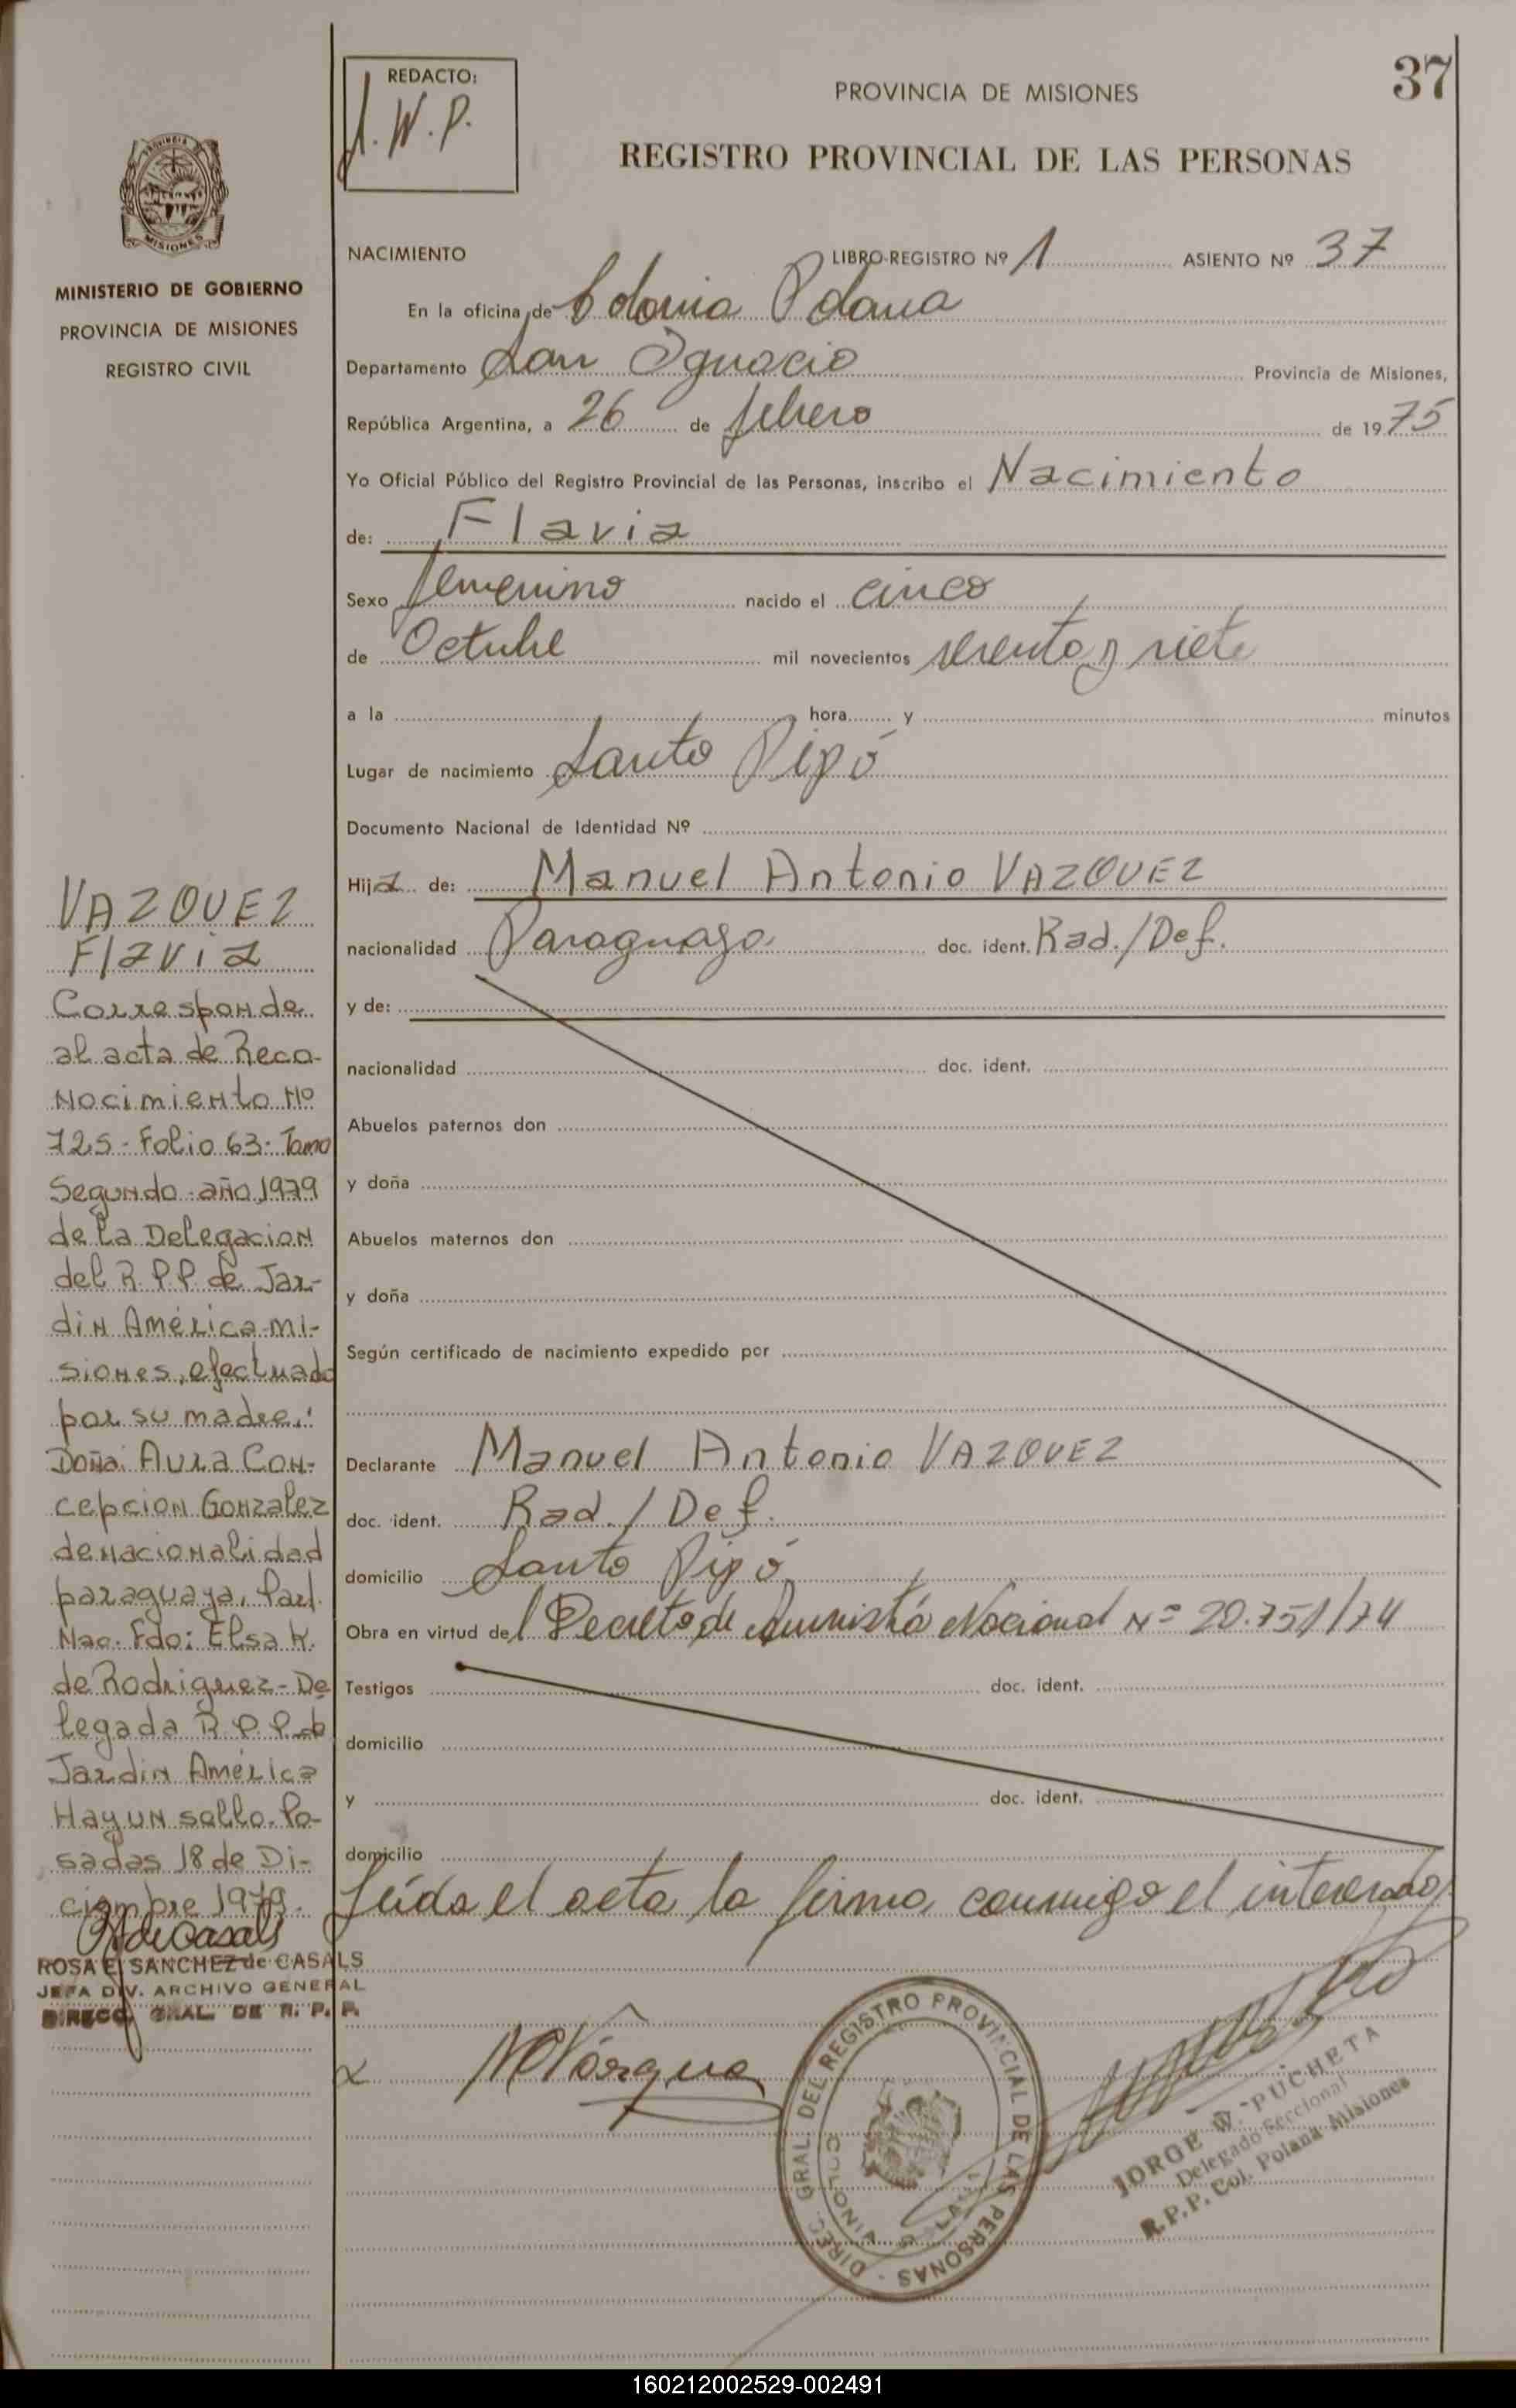 REDACTO:
J. W. P.
PROVINCIA DE MISIONES
37
REGISTRO PROVINCIAL DE LAS PERSONAS
MISIONES
MINISTERIO DE GOBIERNO
PROVINCIA DE MISIONES
REGISTRO CIVIL
NACIMIENTO LIBRO-REGISTRO Nº 1 ASIENTO Nº 37
En la oficina de Colonia Polana
Departamento San Ignacio Provincia de Misiones,
República Argentina, a 26 de febrero de 1975
Yo Oficial Público del Registro Provincial de las Personas, inscribo el Nacimiento
de: Flavia
Sexo femenino nacido el cinco
de Octubre mil novecientos sesenta y siete
a la hora y minutos
Lugar de nacimiento Santo Pipó
Documento Nacional de Identidad Nº
Hija de: Manuel Antonio VAZQUEZ
nacionalidad Paraguaya doc. ident. Rad./Def.
y de:
nacionalidad doc. ident.
Abuelos paternos don
y doña
Abuelos maternos don
y doña
Según certificado de nacimiento expedido por
Declarante Manuel Antonio VAZQUEZ
doc. ident. Rad./Def.
domicilio Santo Pipó
Obra en virtud del Decreto de Amnistía Nacional Nº 20.751/74
Testigos doc. ident.
domicilio
y doc. ident.
domicilio
Leída el acta la firma conmigo el interesado
VAZQUEZ
Flavia
Corresponde
al acta de Reco-
nocimiento Nº
725- Folio 63- Tomo
Segundo-año 1979
de la Delegacion
del R.P.P. de Jar-
din América-Mi-
siones, efectuado
por su madre:
Doña Aura Con-
cepcion Gonzalez
de nacionalidad
paraguaya, Part.
Nac. Fdo: Elsa K.
de Rodriguez- De
legada R.P.P. de
Jardin América
Hay un sello. Po-
sadas 18 de Di-
ciembre 1979.
ROSA E. SANCHEZ de CASALS
JEFA DIV. ARCHIVO GENERAL
DIRECC. GRAL. DE R. P. P.
DIREC. GRAL. DEL REGISTRO PROVINCIAL DE LAS PERSONAS
COLONIA
JORGE W. PUCHETA
Delegado Seccional
R.P.P. Col. Polana Misiones
160212002529-002491